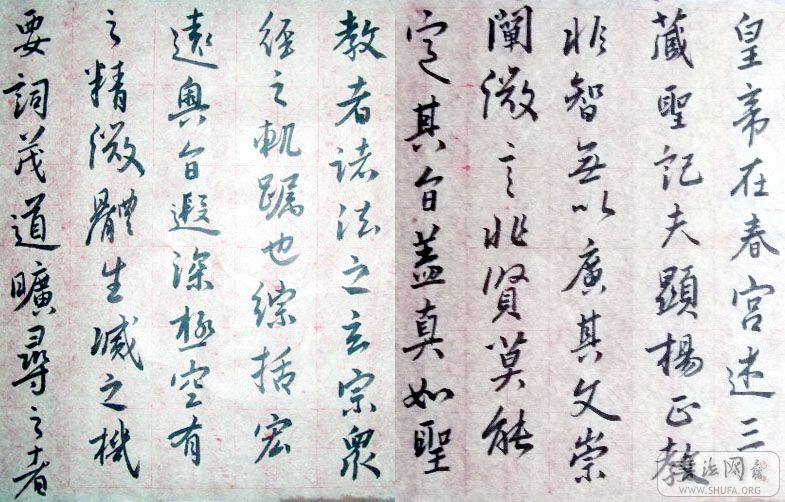 皇帝在春宮述三
藏聖記夫顯楊正教
非智無以廣其文崇
闡微言非賢莫能
定其旨蓋真如聖
教者諸法之玄宗眾
經之軌躅也綜括宏
遠奧旨遐深極空有
之精微體生滅之機
要詞茂道曠尋之者
書法网
WWW.SHUFA.ORG